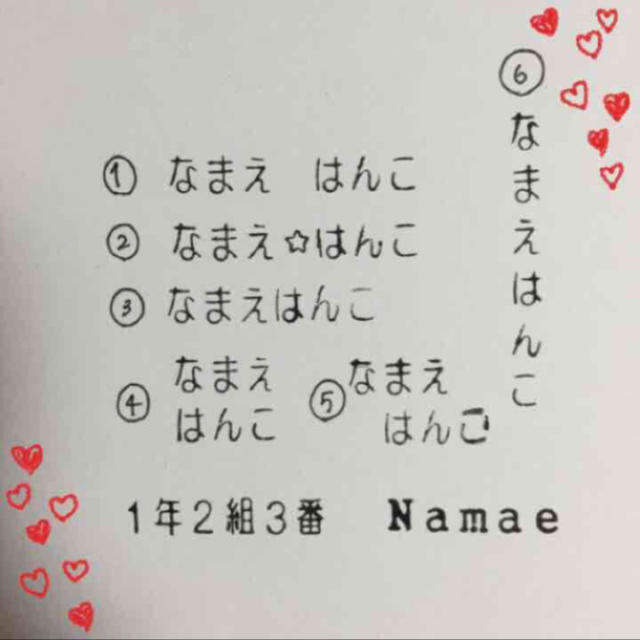 ① なまえ　はんこ
② なまえ☆はんこ
③ なまえはんこ
④ なまえ
はんこ
⑤ なまえ
はんこ
⑥ なまえはんこ
1年2組3番　Namae